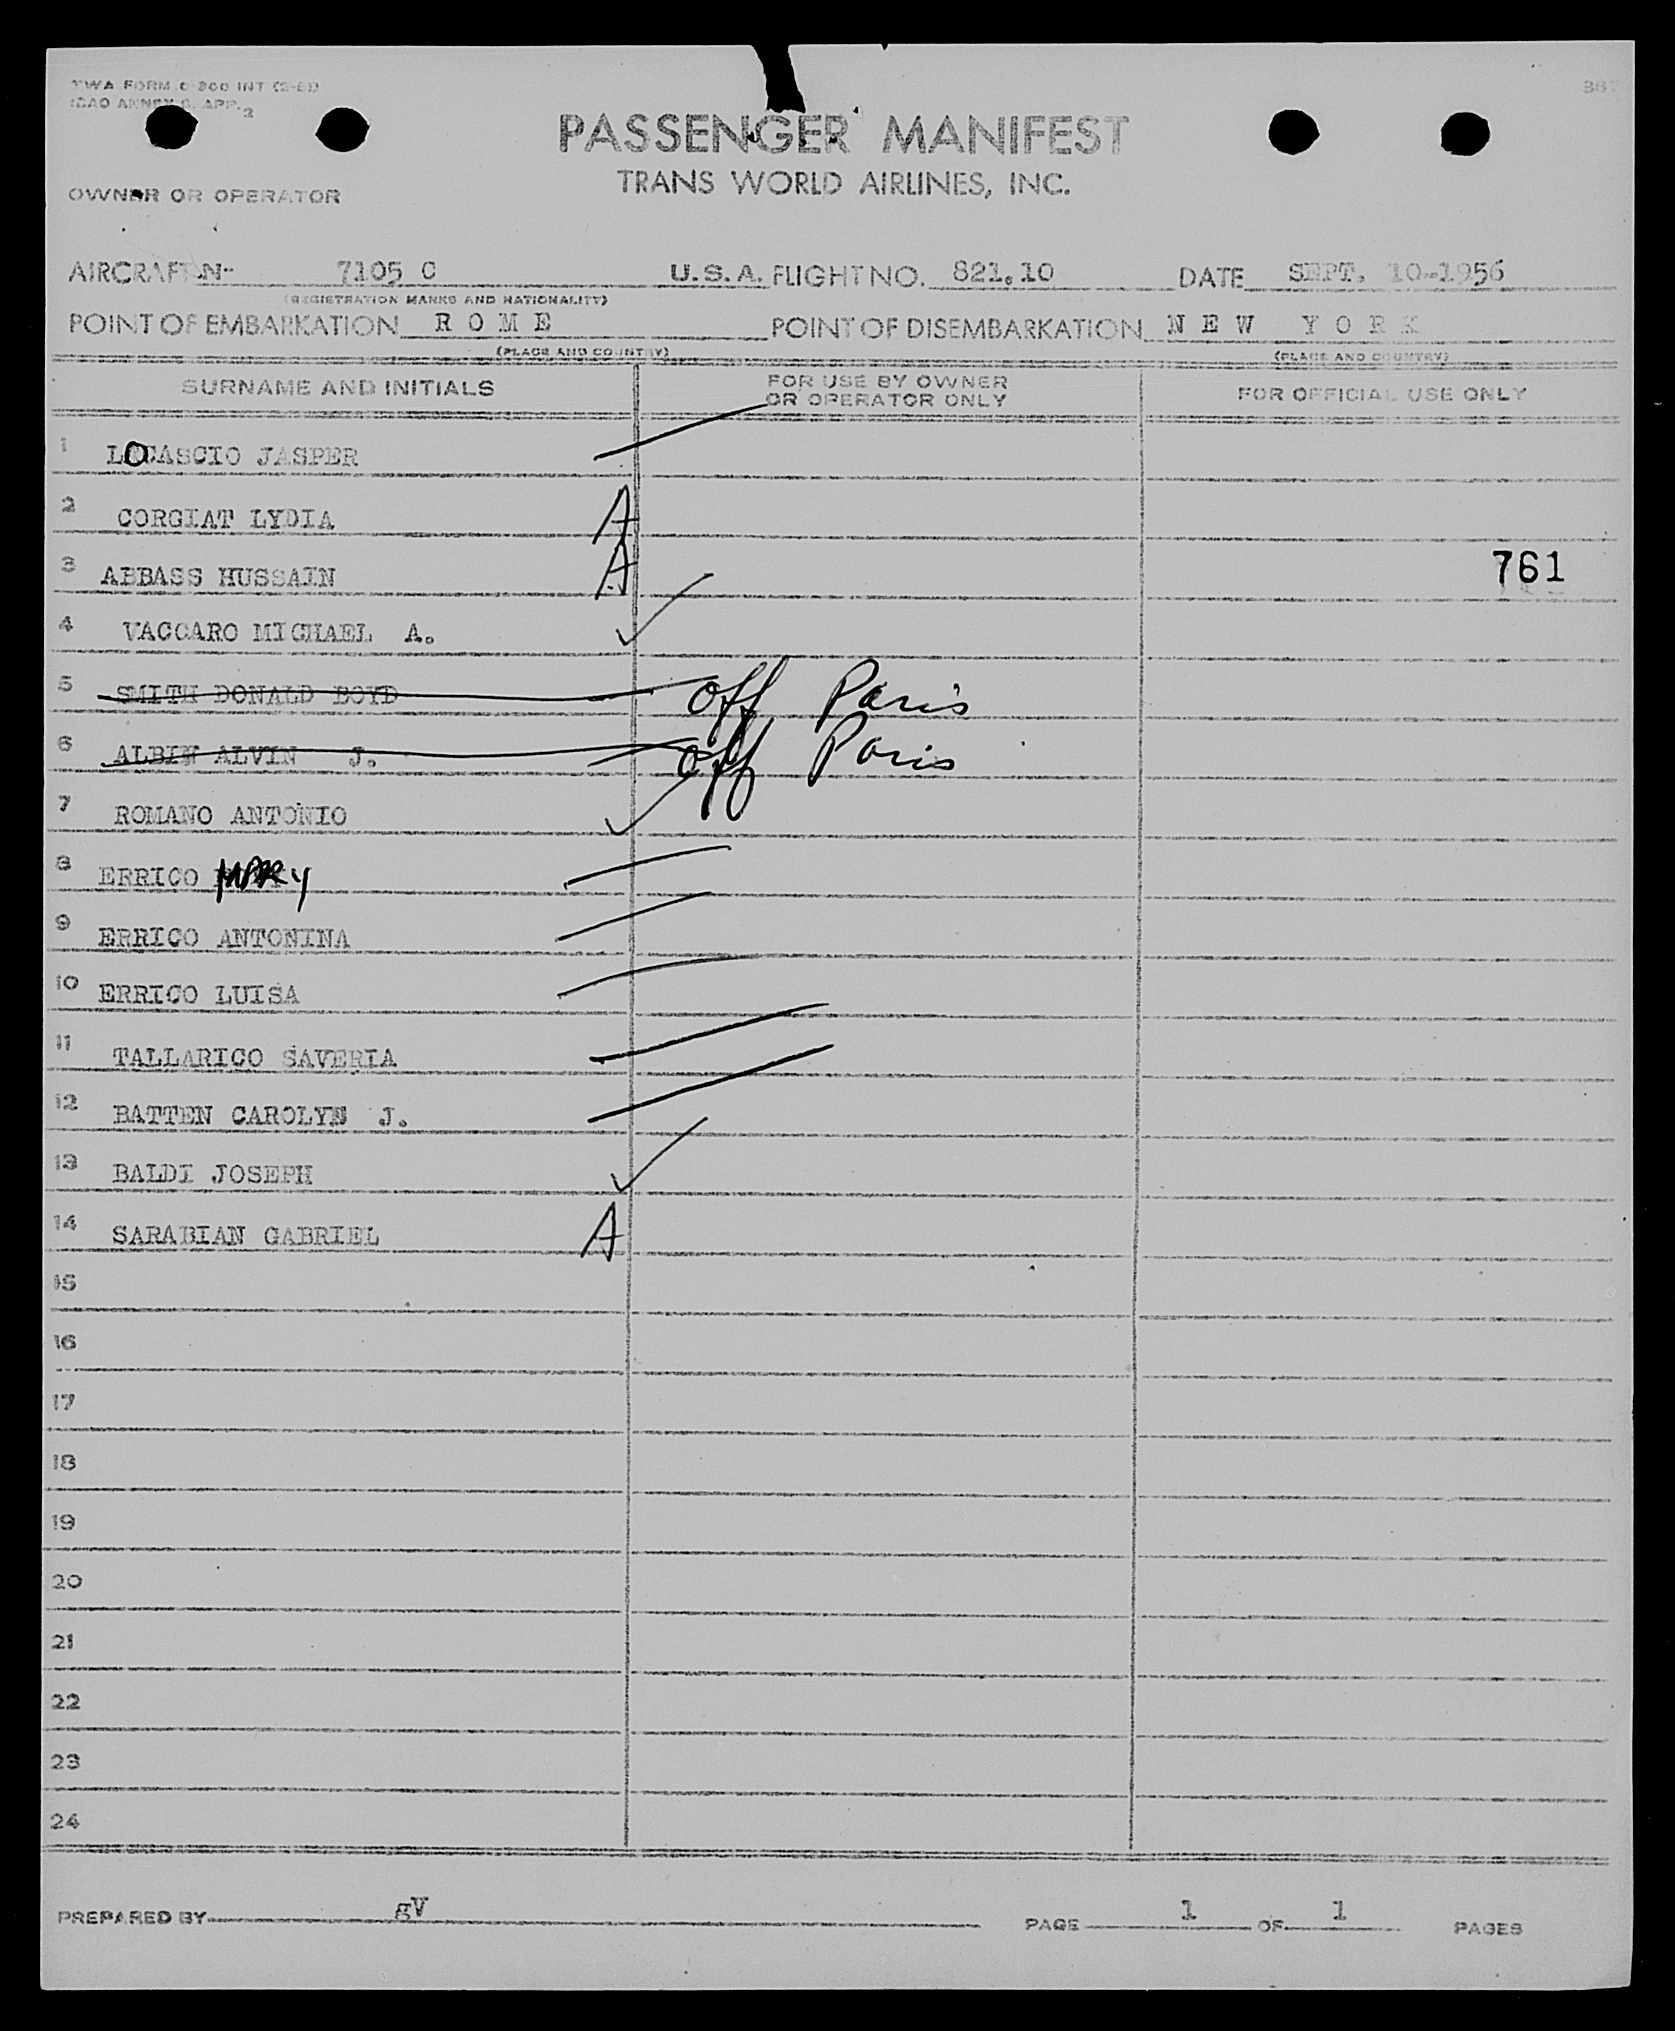 TWA FORM C-200 INT (2-51)
ICAO ANNEX 9, APP. 2
PASSENGER MANIFEST
TRANS WORLD AIRLINES, INC.
OWNER OR OPERATOR
AIRCRAFT N- 7105 C U.S.A. FLIGHT NO. 821.10 DATE SEPT. 10-1956
(REGISTRATION MARKS AND NATIONALITY)
POINT OF EMBARKATION R O M E POINT OF DISEMBARKATION N E W Y O R K
(PLACE AND COUNTRY) (PLACE AND COUNTRY)
SURNAME AND INITIALS FOR USE BY OWNER OR OPERATOR ONLY FOR OFFICIAL USE ONLY
1 LOCASCIO JASPER
2 CORGIAT LYDIA A
3 ABBASS HUSSAIN A 761
4 VACCARO MICHAEL A. ✓
5 SMITH DONALD BOYD off Paris
6 ALBIN ALVIN J. off Paris
7 ROMANO ANTONIO ✓
8 ERRICO MARY
9 ERRICO ANTONINA
10 ERRICO LUISA
11 TALLARICO SAVERIA
12 BATTEN CAROLYN J.
13 BALDI JOSEPH ✓
14 SARABIAN GABRIEL A
15
16
17
18
19
20
21
22
23
24
PREPARED BY gV PAGE 1 OF 1 PAGES